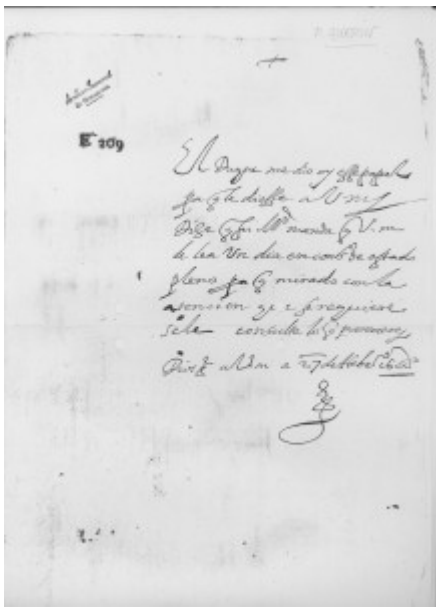 E 209
El Duque me dio oy este papel
pa q le diesse a V m
Dize q su Md manda q V. m
le lea Un dia en cons.º de estado
pleno pa q mirado con la
atencion q se requiere
se le consulte lo q
Dios g a V m a 27 de